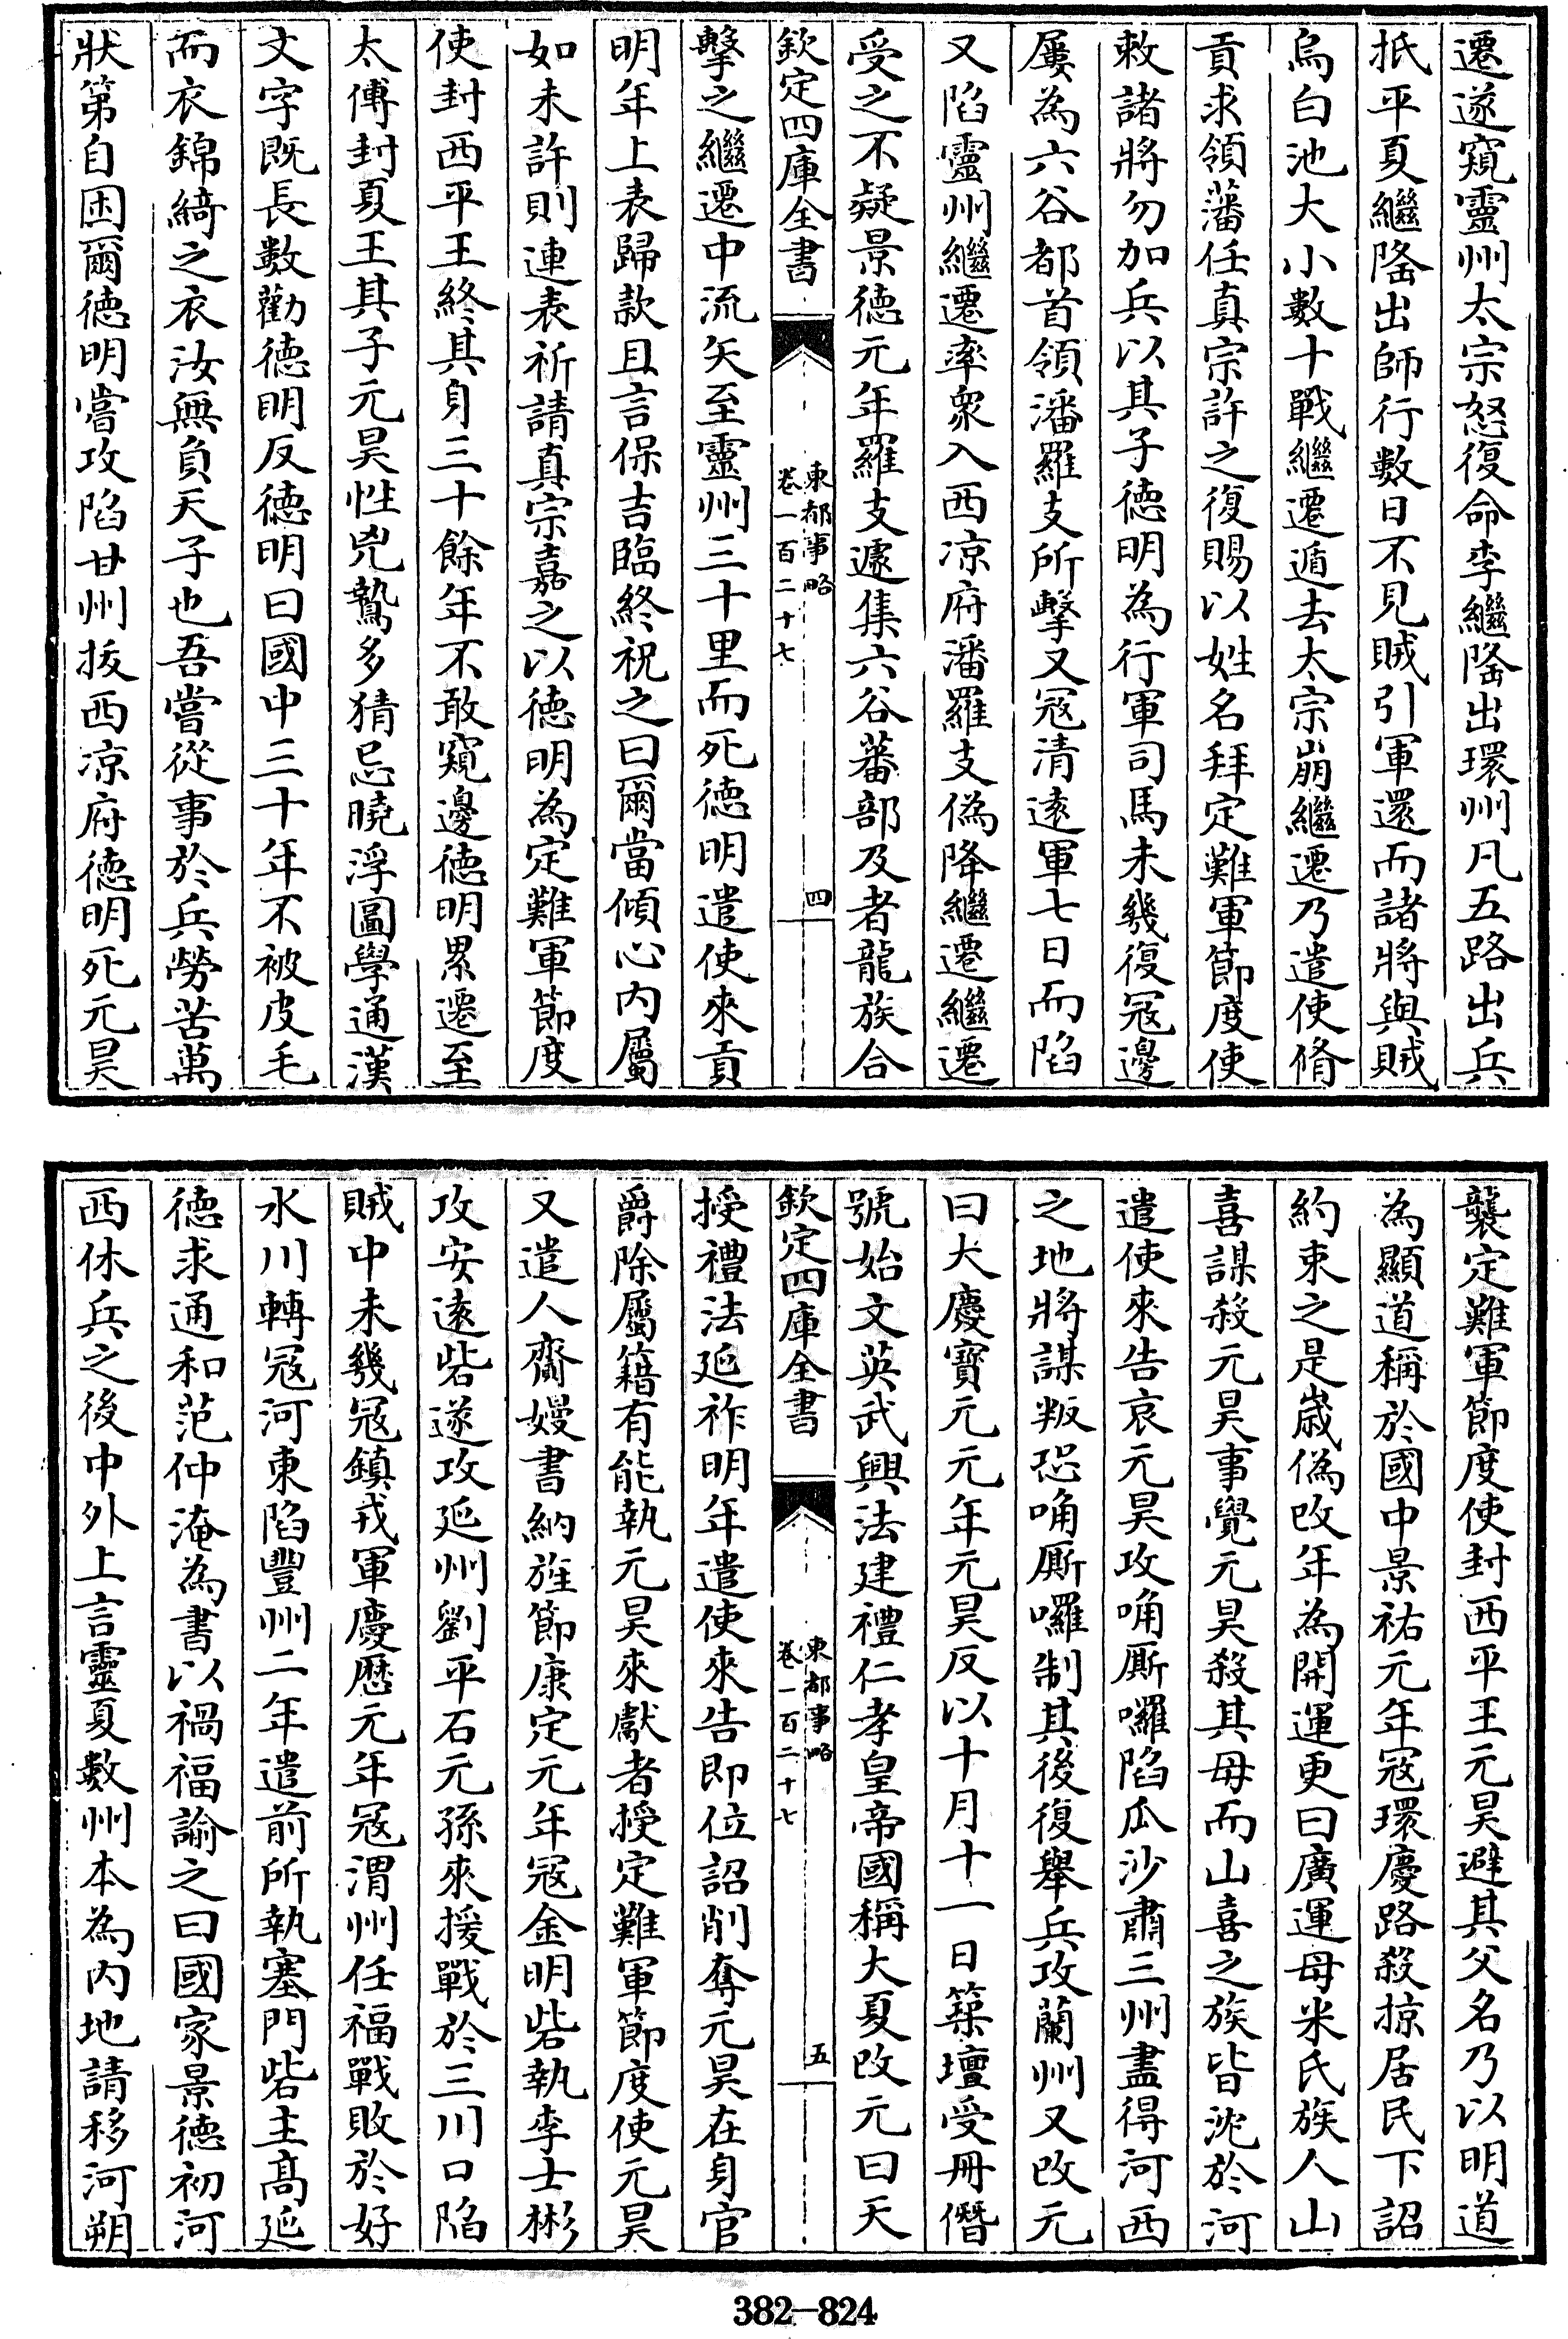 遷遂窺靈州太宗怒復命李繼隆出環州凡五路出兵
抵平夏繼隆出師行數日不見賊引軍還而諸將與賊
烏白池大小數十戰繼遷遁去太宗崩繼遷乃遣使脩
貢求領藩任真宗許之復賜以姓名拜定難軍節度使
敕諸將勿加兵以其子德明為行軍司馬未幾復冦邊
屢為六谷都首領潘羅支所擊又冦清逺軍七日而陷
又陷靈州繼遷率衆入西凉府潘羅支偽降繼遷繼遷
受之不疑景徳元年羅支遽集六谷蕃部及者龍族合
欽定四庫全書
東都事略
卷一百二十七
四
擊之繼遷中流矢至靈州三十里而死徳明遣使來貢
明年上表歸款且言保吉臨終祝之曰爾當傾心内屬
如未許則連表祈請真宗嘉之以徳明為定難軍節度
使封西平王終其身三十餘年不敢窺邊徳明累遷至
太傅封夏王其子元昊性兇鷙多猜忌曉浮圖學通漢
文字既長數勸徳明反徳明曰國中三十年不被皮毛
而衣錦綺之衣汝無負天子也吾嘗從事於兵勞苦萬
狀第自困爾徳明嘗攻陷甘州抜西凉府徳明死元昊
襲定難軍節度使封西平王元昊避其父名乃以明道
為顯道稱於國中景祐元年冦環慶路殺掠居民下詔
約束之是嵗偽改年為開運更曰廣運母米氏族人山
喜謀殺元昊事覺元昊殺其母而山喜之族皆沈於河
遣使來告哀元昊攻唃厮囉陷瓜沙肅三州盡得河西
之地將謀叛恐唃厮囉制其後復舉兵攻蘭州又改元
曰大慶寳元元年元昊反以十月十一日築壇受冊僭
號始文英武興法建禮仁孝皇帝國稱大夏改元曰天
欽定四庫全書
東都事略
卷一百二十七
五
授禮法延祚明年遣使來告即位詔削奪元昊在身官
爵除屬籍有能執元昊來獻者授定難軍節度使元昊
又遣人齎嫚書納旌節康定元年冦金明砦執李士彬
攻安逺砦遂攻延州劉平石元孫來援戰於三川口陷
賊中未幾冦鎮戎軍慶厯元年冦渭州任福戰敗於好
水川轉冦河東陷豐州二年遣前所執塞門砦主髙延
徳求通和范仲淹為書以禍福諭之曰國家景徳初河
西休兵之後中外上言靈夏數州本為内地請移河朔
382-824